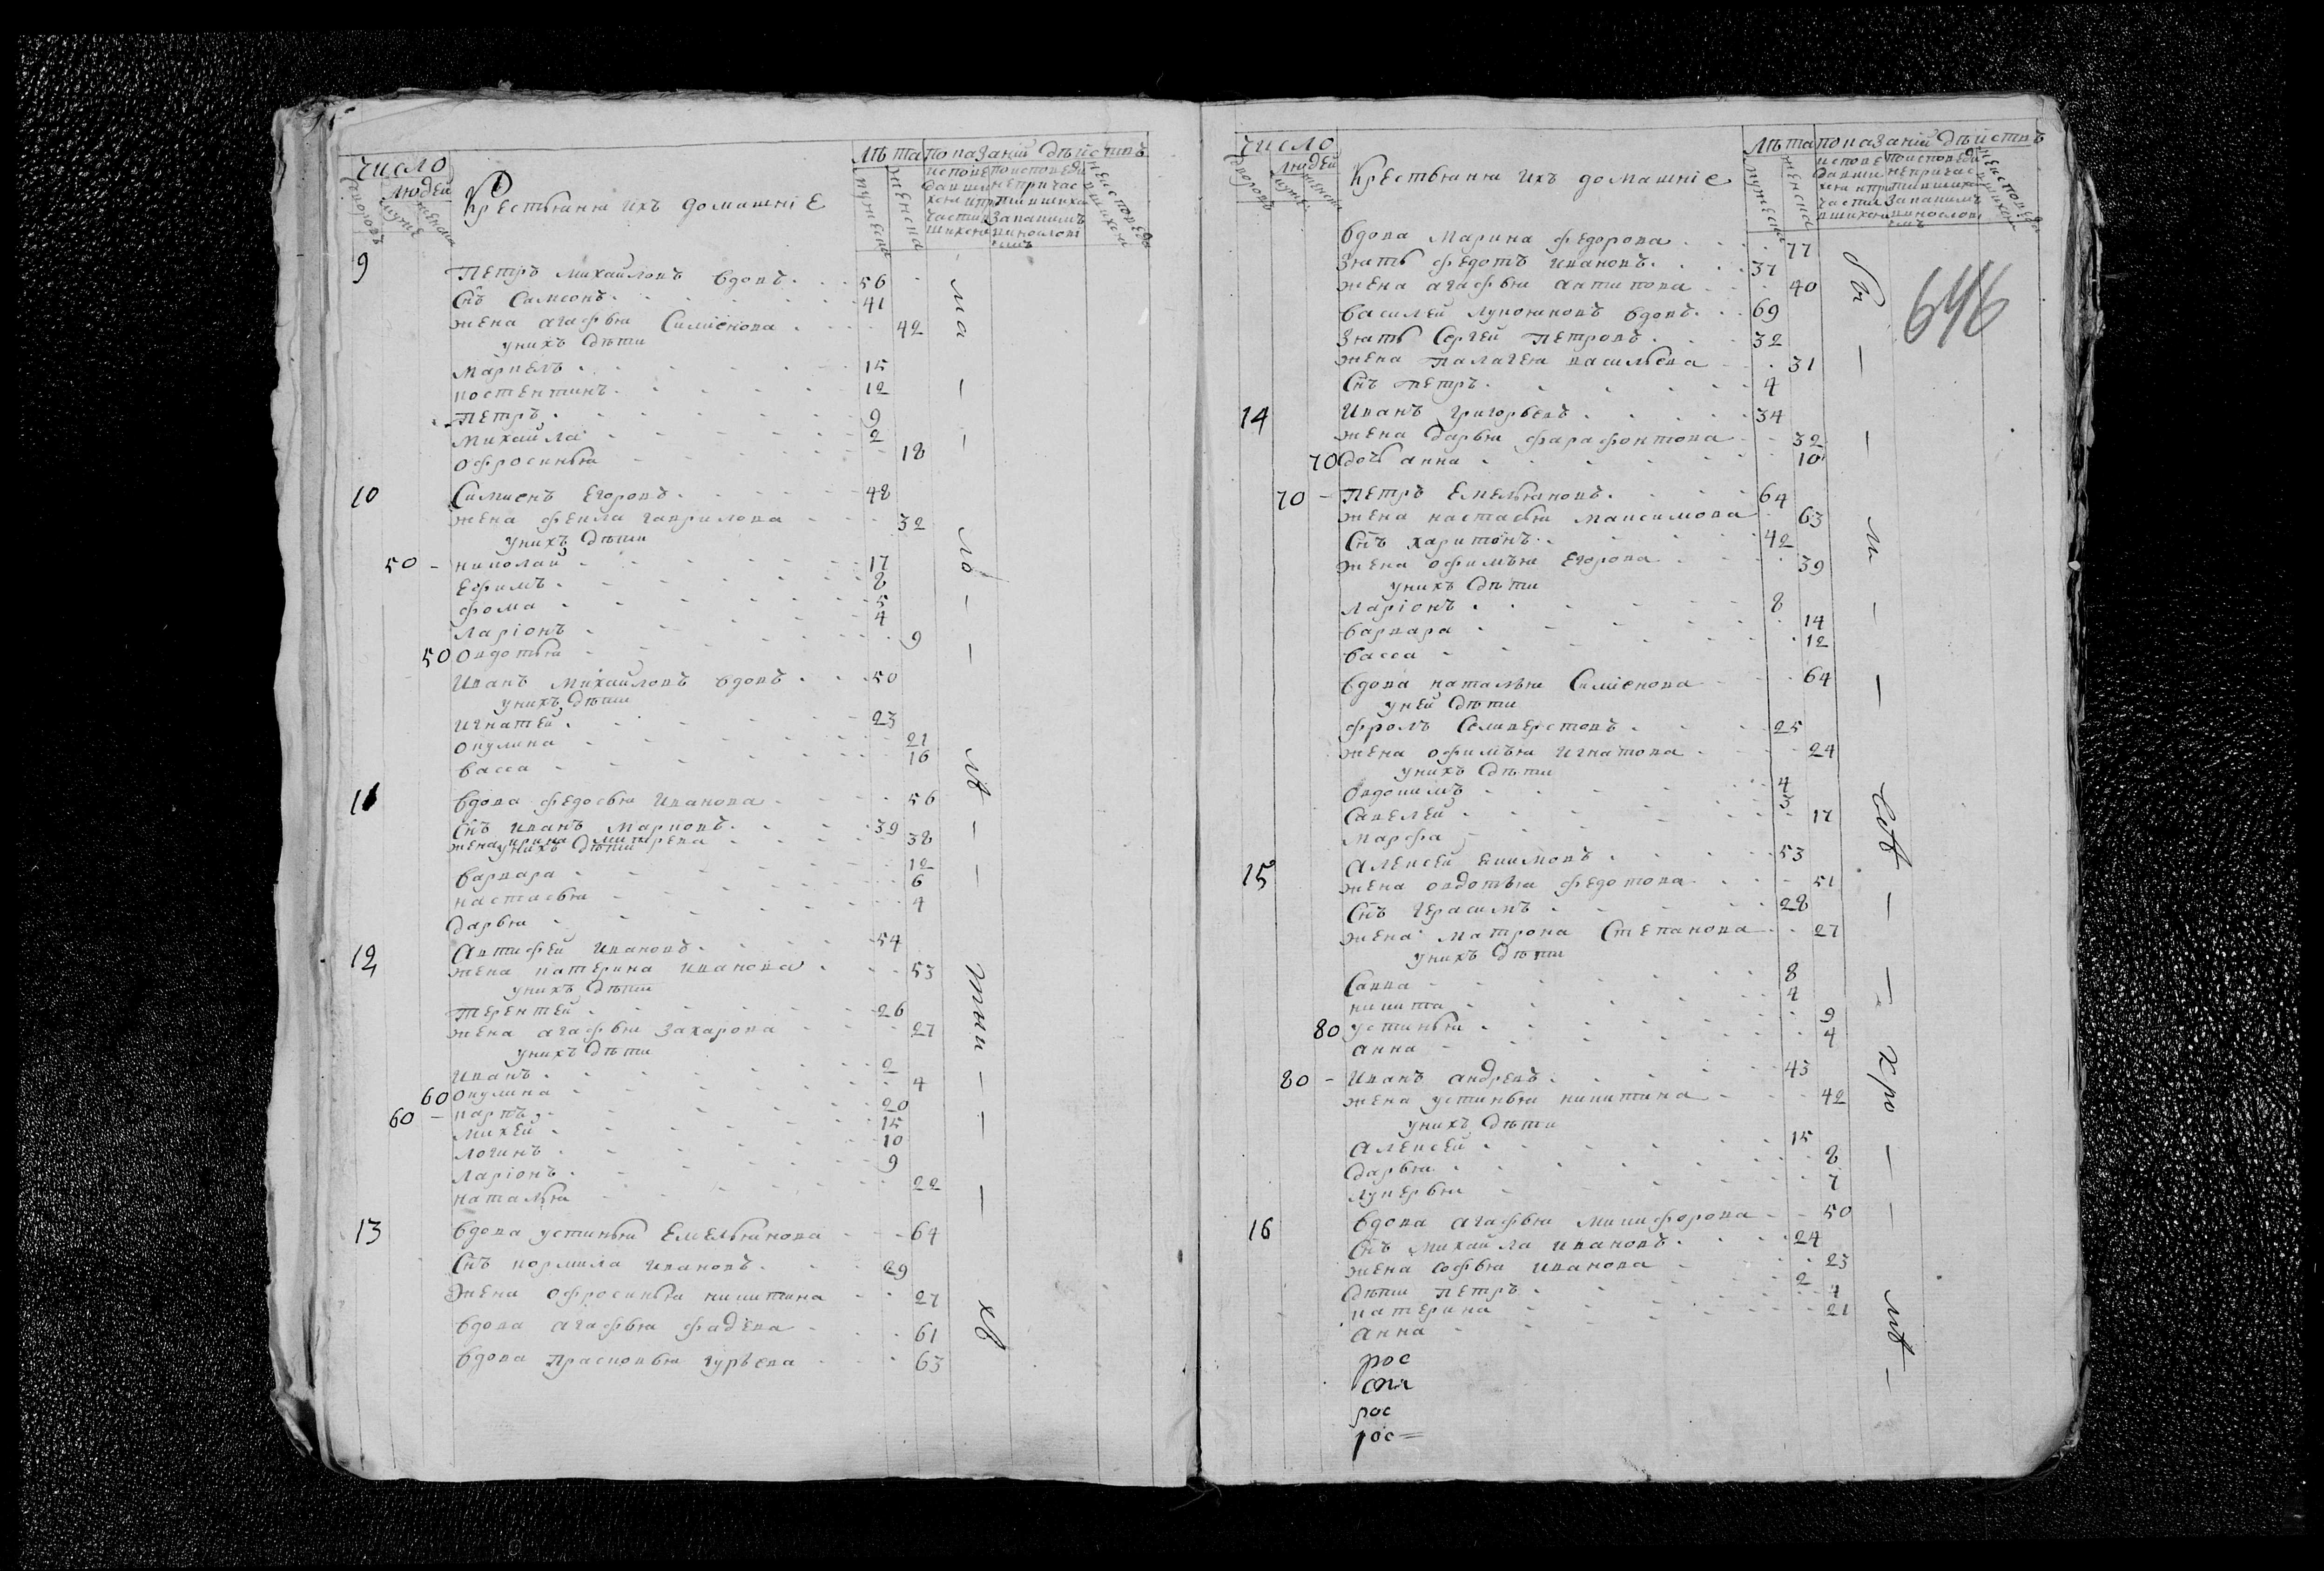 число
людей
дворовъ
мужес
женска
Крестьяня ихъ домашнiе
лѣта
мужеска
женска
показанiи дѣйствъ
9 Петръ михаиловъ вдовъ 56
Снъ Самсонъ 41
жена агафья Симiенова 42
унихъ дѣти
маркелъ 15
костентинъ 12
Петръ 9
михаила 2
офросинья 18
10 Симиенъ Егоровъ 48
жена фекла гаврилова 32
унихъ дѣти
50 николаи 17
Ефимъ 8
фома 5
ларiонъ 4
50 овдотья 9
Иванъ михаиловъ вдовъ 50
унихъ дѣти
игнатеи 23
окулина 21
васса 16
11 вдова федосья иванова 56
Снъ иванъ марковъ 39
жена ирина митрева 38
унихъ дѣти
варвара 12
настасья 6
дарья 4
12 Автифеи ивановъ 54
жена катерина иванова 53
унихъ дѣти
Терентеи 26
жена агафья захарова 27
унихъ дѣти
иванъ 2
60 окулина 4
60 карпъ 20
михеи 15
логинъ 10
ларiонъ 9
наталья 22
13 вдова устинья Емельянова 64
Снъ кормила ивановъ 29
жена офросинья никитина 27
вдова агафья фадѣева 61
вдова прасковья гурьева 63
ма
ло
лѣ
тни
хъ
число
людей
дворовъ
мужес
женска
Крестьяня ихъ домашнiе
лѣта
мужеска
женска
показанiи дѣйствъ
646
вдова марина федорова 77
зять федотъ ивановъ 37
жена агафья антипова 40
василеи лукояновъ вдовъ 69
зять Сергеи Петровъ 32
жена палагея васильева 31
Снъ петръ 4
14 иванъ григорьевъ 34
жена дарья фарафонтова 32
70 дочь анна 10
70 петръ Емельяновъ 64
жена настасья максимова 63
Снъ харитонъ 42
жена офимья Егорова 39
унихъ дѣти
ларiонъ 8
варвара 14
васса 12
вдова наталья Симiенова 64
уней дѣти
фролъ Селиверстовъ 25
жена офимья игнатова 24
унихъ дѣти
овдокимъ 4
Савелеи 3
марфа 17
15 Алексеи екимовъ 53
жена овдотья федотова 51
Снъ герасимъ 28
жена матрона Степанова 27
унихъ дѣти
Савва 8
никита 4
80 устинья 9
анна 4
80 иванъ андревъ 43
жена устинья никитина 42
унихъ дѣти
алексеи 15
дарья 8
лукерья 7
16 вдова агафья никифорова 50
Снъ михаила ивановъ 24
жена софья иванова 23
дѣти петръ 2
катерина 4
анна 21
рос
рос
рос
кро
мѣ